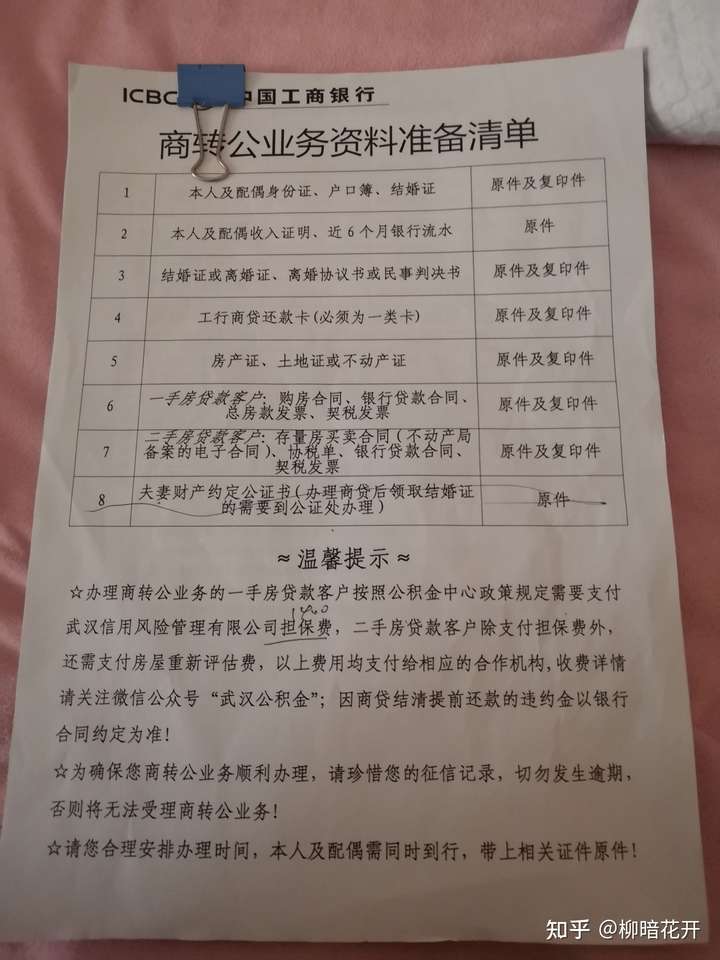 ICBC 中国工商银行
商转公业务资料准备清单
1 本人及配偶身份证、户口簿、结婚证 原件及复印件
2 本人及配偶收入证明、近6个月银行流水 原件
3 结婚证或离婚证、离婚协议书或民事判决书 原件及复印件
4 工行商贷还款卡(必须为一类卡) 原件及复印件
5 房产证、土地证或不动产证 原件及复印件
6 一手房贷款客户：购房合同、银行贷款合同、 原件及复印件
总房款发票、契税发票
7 二手房贷款客户：存量房买卖合同(不动产局 原件及复印件
备案的电子合同)、协税单、银行贷款合同、
契税发票
8 夫妻财产约定公证书(办理商贷后领取结婚证 原件
的需要到公证处办理)
≈温馨提示≈
☆办理商转公业务的一手房贷款客户按照公积金中心政策规定需要支付
武汉信用风险管理有限公司担保费，二手房贷款客户除支付担保费外，
还需支付房屋重新评估费，以上费用均支付给相应的合作机构,收费详情
请关注微信公众号“武汉公积金”；因商贷结清提前还款的违约金以银行
合同约定为准！
☆为确保您商转公业务顺利办理，请珍惜您的征信记录，切勿发生逾期，
否则将无法受理商转公业务！
☆请您合理安排办理时间，本人及配偶需同时到行，带上相关证件原件！
知乎 @柳暗花开